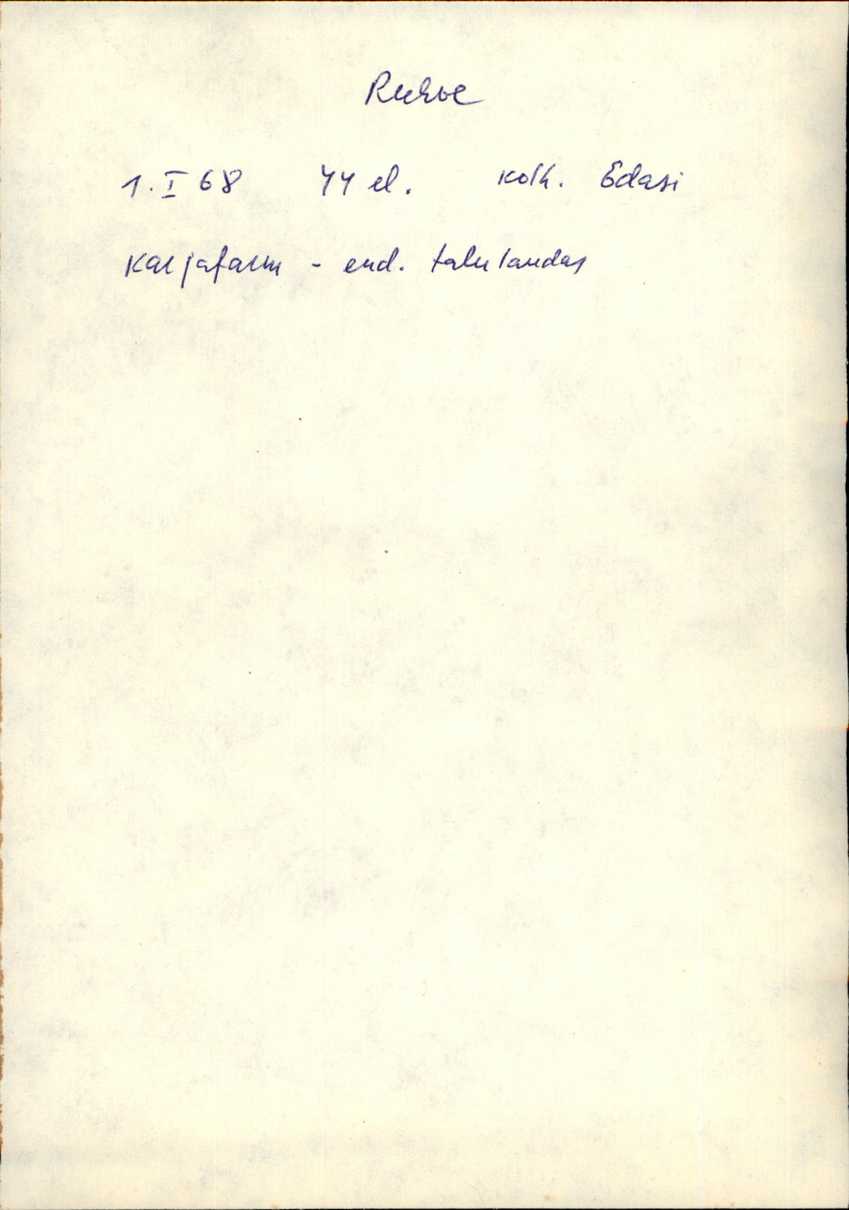 Ruhve
1. I 68 44 el. kolh. Edasi
Karjafarm - end. talulaudas